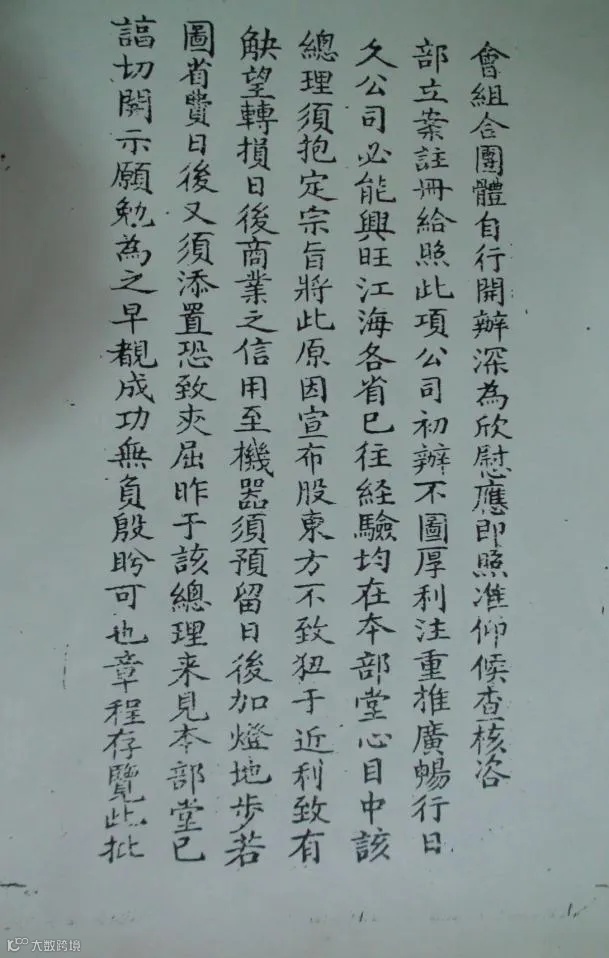 會組合團體自行開辦深為欣慰應即照准仰候查核咨
部立案註冊給照此項公司初辦不圖厚利注重推廣暢行日
久公司必能興旺江海各省已往經驗均在本部堂心目中該
總理須抱定宗旨將此原因宣布股東方不致狃于近利致有
觖望轉損日後商業之信用至機器須預留日後加燈地步若
圖省費日後又須添置恐致夾屈昨于該總理来見本部堂已
諄切開示願勉為之早覩成功無負殷盼可也章程存覽此批
大数跨境